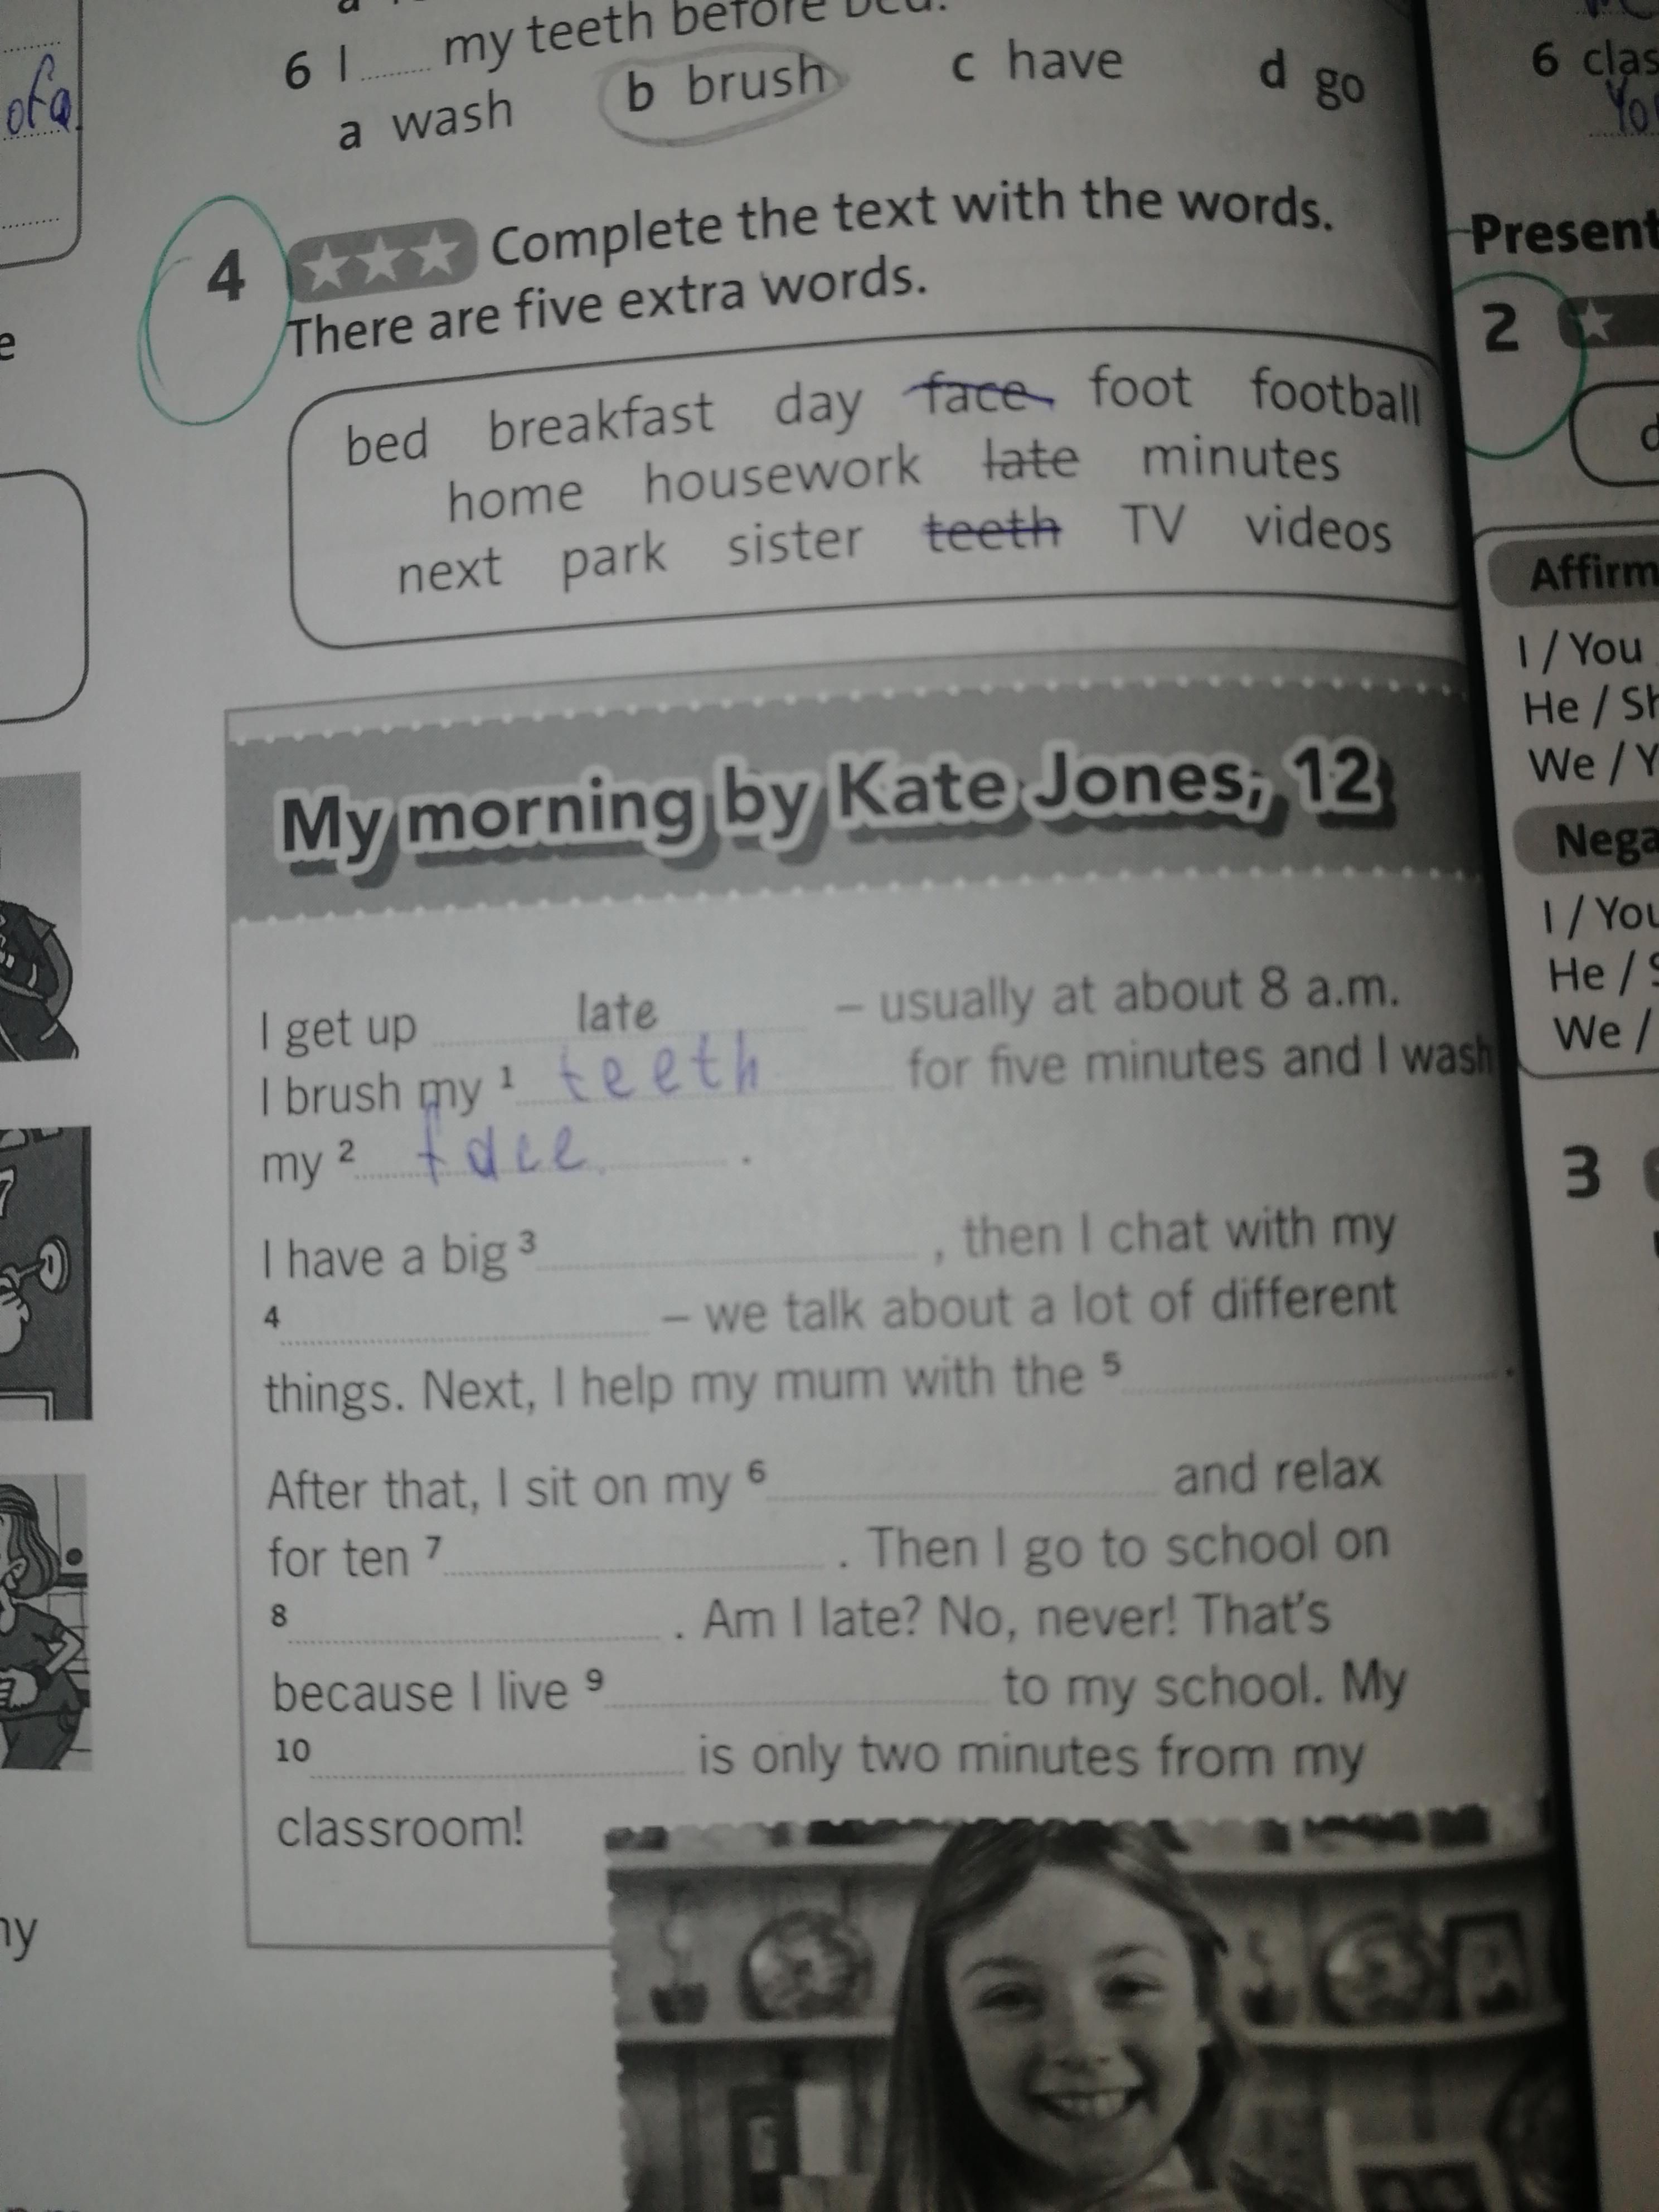 ofa
6 I ........ my teeth before bed.
a wash b brush c have d go
4 Complete the text with the words.
There are five extra words.
bed breakfast day face foot football
home housework late minutes
next park sister teeth TV videos
My morning by Kate Jones, 12
I get up late – usually at about 8 a.m.
I brush my 1 teeth for five minutes and I wash
my 2 face .
I have a big 3 , then I chat with my
4 – we talk about a lot of different
things. Next, I help my mum with the 5 .
After that, I sit on my 6 and relax
for ten 7 . Then I go to school on
8 . Am I late? No, never! That's
because I live 9 to my school. My
10 is only two minutes from my
classroom!
6 clas
Yo
Present
2
Affirm
I / You
He / Sh
We / Y
Nega
I / You
He / S
We /
3